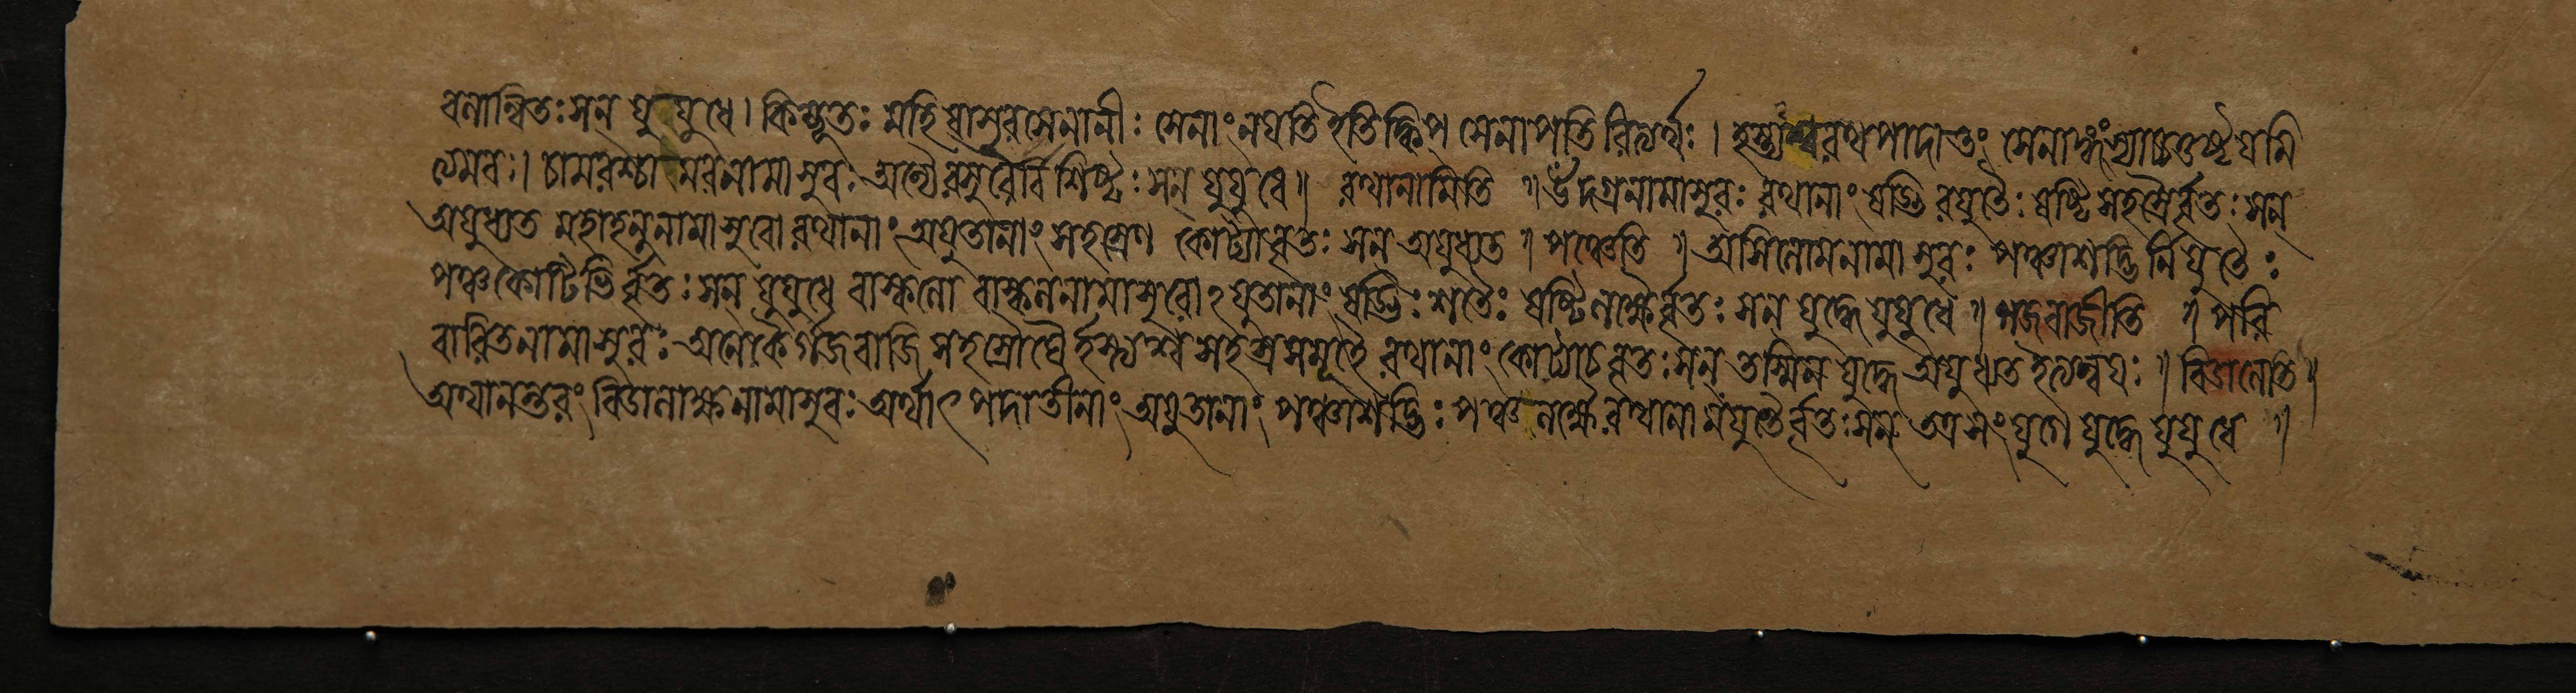 বলান্বিতঃ সন্ যুযুধে । কিম্ভূতঃ মহিষাসুরসেনানীঃ সেনাং নয়তি ইতি ক্বিপ্ সেনাপতিরিত্যর্থঃ । হস্ত্যশ্বরথপাদাতং সেনাঙ্গং স্যাচ্চতুষ্টয়মি
ত্যমরঃ । চামরশ্চামরনামাসুরঃ অন্যৈরসুরৈর্বিশিষ্টঃ সন্ যুযুধে ॥ রথানামিতি ॥ উদগ্রনামাসুরঃ রথানাং ষড্ভিরযুতৈঃ ষষ্টিসহস্রৈর্বৃতঃ সন্
অযুধ্যত মহাহনুনামাসুরো রথানাং অযুতানাং সহস্রেণ কোট্যা বৃতঃ সন্ অযুধ্যত ॥ পঞ্চেতি ॥ অসিলোমনামাসুরঃ পঞ্চাশদ্ভির্নিযুতৈঃ
পঞ্চকোটিভির্বৃতঃ সন্ যুযুধে বাস্কলো বাস্কলনামাসুরোঽযুতানাং ষড্ভিঃ শতৈঃ ষষ্টিলক্ষৈর্বৃতঃ সন্ যুদ্ধে যুযুধে ॥ গজবাজীতি ॥ পরি
বারিতনামাসুরঃ অনেকৈর্গজবাজিসহস্রৌঘৈর্হস্ত্যশ্বসহস্রসমূহৈ রথানাং কোট্যাচ বৃতঃ সন্ তস্মিন্ যুদ্ধে অযুধ্যত ইত্যন্বয়ঃ ॥ বিডালেতি ॥
অথানন্তরং বিডালাক্ষনামাসুরঃ অর্থাৎ পদাতীনাং অযুতানাং পঞ্চাশদ্ভিঃ পঞ্চলক্ষৈ রথানামযুতৈর্বৃতঃ সন্ তত্র সংযুগে যুদ্ধে যুযুধে ॥